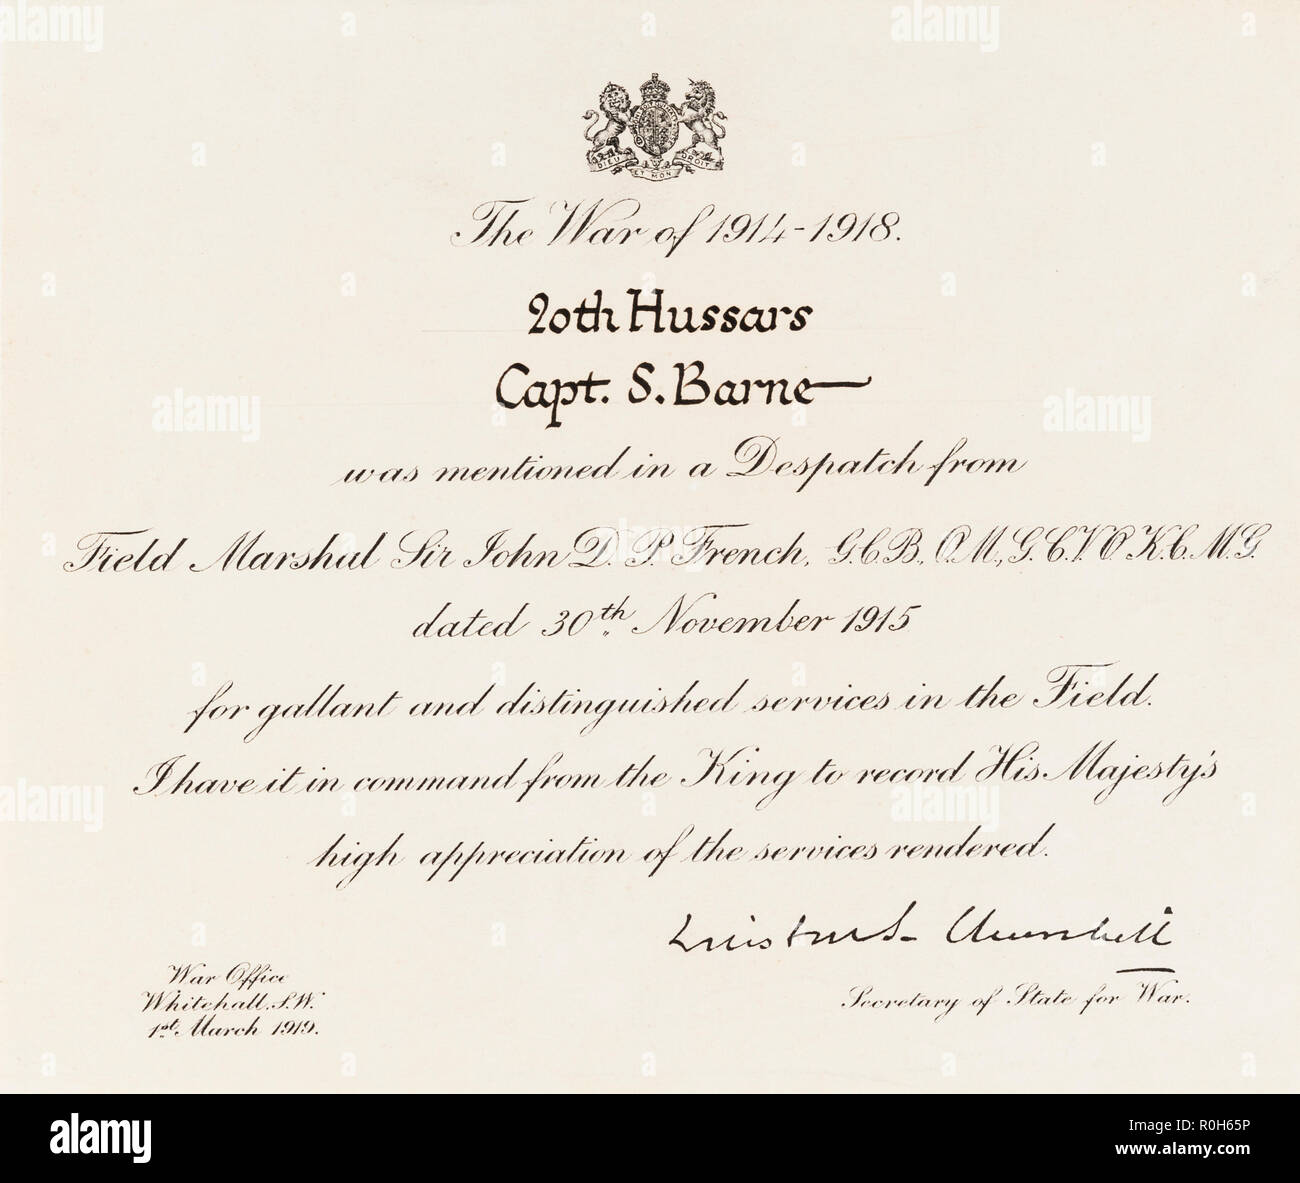 DIEU ET MON DROIT
The War of 1914-1918.
20th Hussars
Capt. S. Barne
was mentioned in a Despatch from
Field Marshal Sir John D. P. French, G.C.B., O.M., G.C.V.O. K.C.M.G.
dated 30th November 1915
for gallant and distinguished services in the Field.
I have it in command from the King to record His Majesty's
high appreciation of the services rendered.
Winston S. Churchill
Secretary of State for War.
War Office
Whitehall, S.W.
1st March 1919.
alamy
Image ID: R0H65P
www.alamy.com